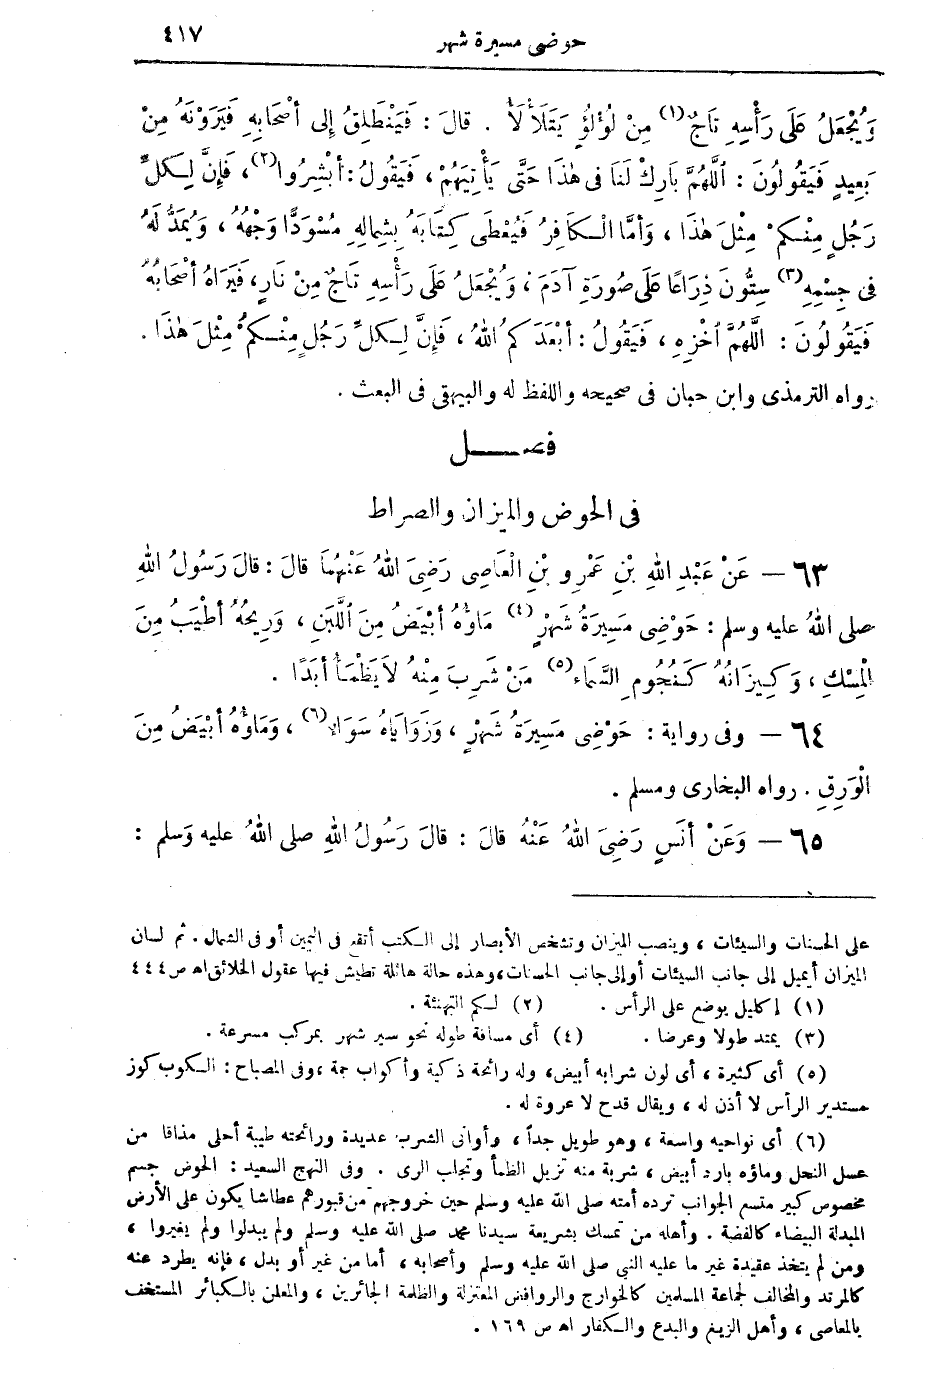 حوضى مسيرة شهر ٤١٧
وَيُجْعَلُ عَلَى رَأْسِهِ تَاجٌ (١) مِنْ لُؤْلُؤٍ يَتَلَأْلَأُ . قالَ : فَيَنْطَلِقُ إلى أَصْحَابِهِ فَيَرَوْنَهُ مِنْ
بَعِيدٍ فَيَقُولُونَ : اَللَّهُمَّ بَارِكْ لَنَا فى هٰذَا حَتَّى يَأْتِيَهُمْ ، فَيَقُولُ : أبْشِرُوا (٢) ، فَإِنَّ لِكُلِّ
رَجُلٍ مِنْكُمْ مِثْلَ هٰذَا ، وَأمَّا الْكَافِرُ فَيُعْطَى كِتَابَهُ بِشِمالِهِ مُسْوَدًّا وَجْهُهُ ، وَيُمَدُّ لَهُ
فى جِسْمِهِ (٣) سِتُّونَ ذِرَاعًا عَلَى صُورَةِ آدَمَ ، وَيُجْعَلُ عَلَى رَأْسِهِ تَاجٌ مِنْ نَارٍ ، فَيَرَاهُ أَصْحَابُهُ
فَيَقُولُونَ : اللَّهُمَّ اَخْزِهِ ، فَيَقُولُ : أبْعَدَكُمُ اللهُ ، فَإِنَّ لِكُلِّ رَجُلٍ مِنْكُمْ مِثْلَ هٰذَا .
رواه الترمذى وابن حبان فى صحيحه واللفظ له والبيهقى فى البعث .
فصل
فى الحوض والميزان والصراط
٦٣ — عَنْ عَبْدِ اللهِ بْنِ عَمْرِو بْنِ الْعَاصِى رَضِىَ اللهُ عَنْهُمَا قالَ : قالَ رَسُولُ اللهِ
صلى اللهُ عليه وسلم : حَوْضِى مَسِيرَةُ شَهْرٍ (٤) مَاؤُهُ أَبْيَضُ مِنَ اللَّبَنِ ، وَرِيحُهُ أَطْيَبُ مِنَ
الْمِسْكِ ، وَكِيزَانُهُ كَنُجُومِ السَّمَاءِ (٥) مَنْ شَرِبَ مِنْهُ لاَ يَظْمَأُ أَبَدًا .
٦٤ — وفى رواية : حَوْضِى مَسِيرَةُ شَهْرٍ ، وَزَوَايَاهُ سَوَاءٌ (٦) ، وَمَاؤُهُ أَبْيَضُ مِنَ
الْوَرِقِ . رواه البخارى ومسلم .
٦٥ — وَعَنْ أنَسٍ رَضِىَ اللهُ عَنْهُ قالَ : قالَ رَسُولُ اللهِ صلى اللهُ عليه وَسلم :
على الحسنات والسيئات ، وينصب الميزان وتشخص الأبصار إلى الكتب أتقع فى اليمين أو فى الشمال . ثم لسان
الميزان أيميل إلى جانب السيئات أو إلى جانب الحسنات ، وهذه حالة هائلة تطيش فيها عقول الخلائق اهـ ص ٤٤٤
(١) إكليل يوضع على الرأس . (٢) لكم التهنئة .
(٣) يمتد طولا وعرضا . (٤) أى مسافة طوله نحو سير شهر بمركب مسرعة .
(٥) أى كثيرة ، أى لون شرابه أبيض ، وله رائحة ذكية وأكواب جمة ، وفى المصباح : الكوب كوز
مستدير الرأس لا أذن له ، ويقال قدح لا عروة له .
(٦) أى نواحيه واسعة ، وهو طويل جداً ، وأوانى الشرب عديدة ورائحته طيبة أحلى مذاقا من
عسل النحل وماؤه بارد أبيض ، شربة منه تزيل الظمأ وتجلب الرى . وفى النهج السعيد : الحوض جسم
مخصوص كبير متسع الجوانب ترده أمته صلى الله عليه وسلم حين خروجهم من قبورهم عطاشا يكون على الأرض
المبدلة البيضاء كالفضة . وأهله من تمسك بشريعة سيدنا محمد صلى الله عليه وسلم ولم يبدلوا ولم يغيروا ،
ومن لم يتخذ عقيدة غير ما عليه النبى صلى الله عليه وسلم وأصحابه ، أما من غير أو بدل ، فإنه يطرد عنه
كالمرتد والمخالف لجماعة المسلمين كالخوارج والروافض المعتزلة والظلمة الجائرين ، والمعلن بالكبائر المستخف
بالمعاصى ، وأهل الزيغ والبدع والكفار اهـ ص ١٦٩ .